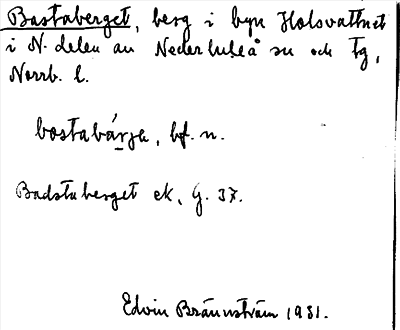 Bastaberget, berg i byn Holsvattnet
i N. delen av Nederluleå sn och tg,
Norrb. l.
bostabárja, bf. n.
Badstuberget ek, G. 37.
Edvin Brännström 1931.